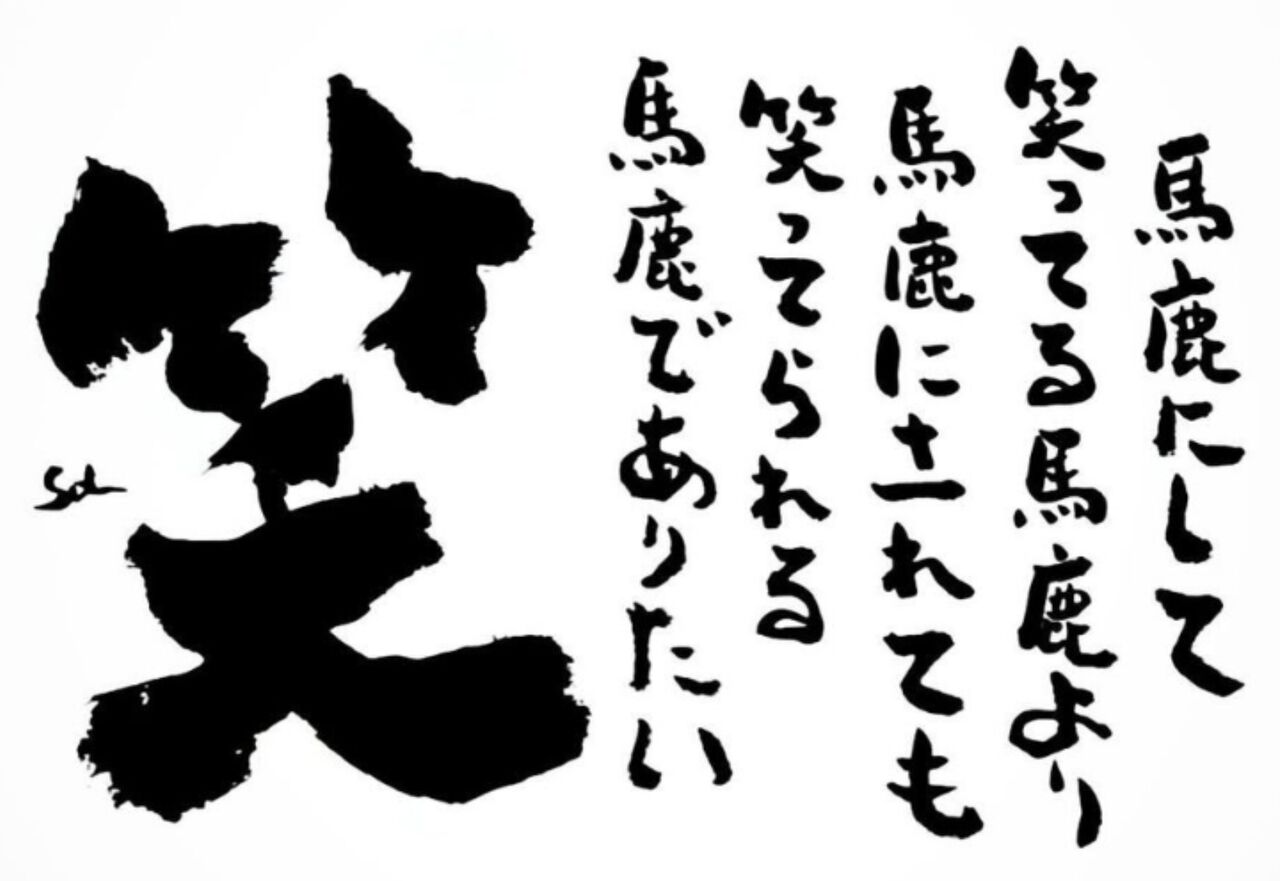 馬鹿にして
笑ってる馬鹿より
馬鹿にされても
笑ってられる
馬鹿でありたい
笑